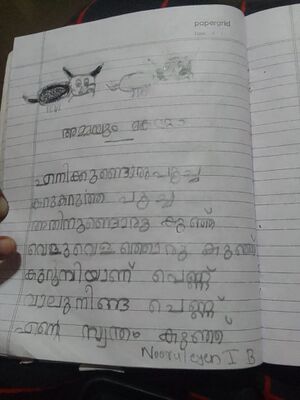 papergrid
അമ്മയും
എനിക്കുണ്ടൊരു പൂച്ച
കറുകറുത്ത പൂച്ച
അതിനുണ്ടൊരു കുഞ്ഞ്
വെളുവെളുത്തൊരു കുഞ്ഞ്
കുറുമ്പിയാണ് പെണ്ണ്
വാലുനീണ്ട പെണ്ണ്
എന്റെ സ്വന്തം കുഞ്ഞ്
Noorul eyen I B